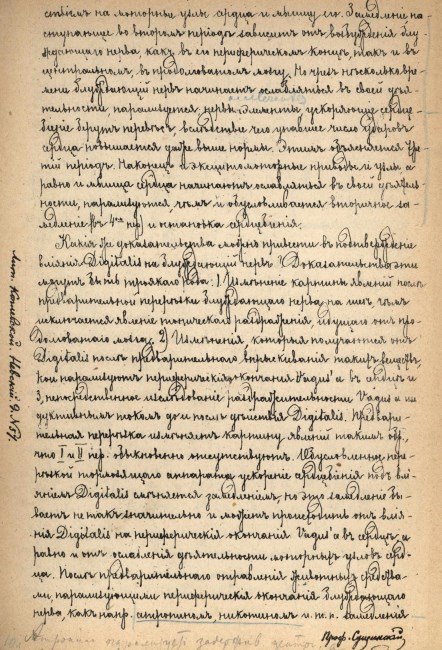 ствіемъ на моторные узлы сердца и мышцу его. Замедленіе на-
ступающее во второмъ періодѣ зависитъ отъ возбужденія блу-
ждающаго нерва, какъ въ его периферическомъ концѣ, такъ и въ
центральномъ, въ продолговатомъ мозгу. Но чрезъ нѣсколько вре-
мени блуждающій нервъ начинаетъ ослабляться въ своей дѣя-
тельности, парализуется, нервн. элементы, ускоряющіе сердце-
біеніе берутъ перевѣсъ, вслѣдствіе чего упавшее число ударовъ
сердца повышается даже выше нормы. Этимъ объясняется тре-
тій періодъ. Наконецъ и эксцитомоторные приводы и узлы, а
равно и мышца сердца начинаютъ ослабляться въ своей дѣятель-
ности, парализуются, чѣмъ и обусловливается вторичное за-
медленіе (въ 4мъ пер) и остановка сердцебіенія.
Какія же доказательства можно привести въ подтвержденіе
вліянія Digitalis на блуждающій нервъ? Доказательства эти
могутъ быть троякаго рода: 1. Измѣненіе картины явленій послѣ
предварительной перерѣзки блуждающаго нерва на шеѣ, чѣмъ
исключается явленіе тоническаго раздраженія, идущаго отъ про-
долговатаго мозга. 2) Измѣненія, которыя получаются отъ
Digitalis послѣ предварительнаго впрыскиванія такихъ веществъ,
кои парализуютъ периферическія окончанія Vagus'а въ сердцѣ и
3, непосредственное изслѣдованіе раздражительности Vagus'а ин-
дуктивнымъ токомъ до и послѣ дѣйствія Digitalis. Предвари-
тельная перерѣзка измѣняетъ картину явленій такимъ обр.,
что I и II пер. обыкновенно отсутствуютъ. Обусловленное пере-
рѣзкой тормозящаго аппарата ускореніе сердцебіенія подъ влі-
яніемъ Digitalis смѣняется замедленіемъ, но это замедленіе бы-
ваетъ не такъ значительно и можетъ происходить отъ влія-
нія Digitalis на периферическія окончанія Vagus'а въ сердцѣ, а
равно и отъ ослабленія дѣятельности моторныхъ узловъ серд-
ца. Послѣ предварительнаго отравленія животныхъ средства-
ми, парализующими периферическія окончанія блуждающаго
нерва, какъ напр. атропиномъ, никотиномъ и т. п. замедленія
Проф. Сущинскій
Лит. Невскій д. №